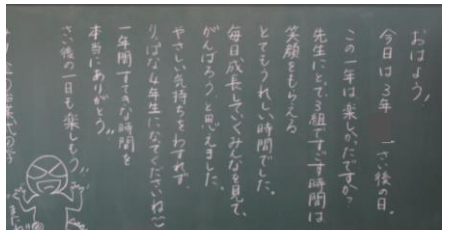 おはよう!
今日は3年 一さい後の日。
この一年は楽しかったですか?
先生にとって3組ですごす時間は
笑顔をもらえる
とてもうれしい時間でした。
毎日成長していくみんなを見て、
がんばろうと思えました。
やさしい気持ちをわすれず、
りっぱな4年生になってくださいね
一年間すてきな時間を
本当にありがとう。
さい後の一日も楽しもう